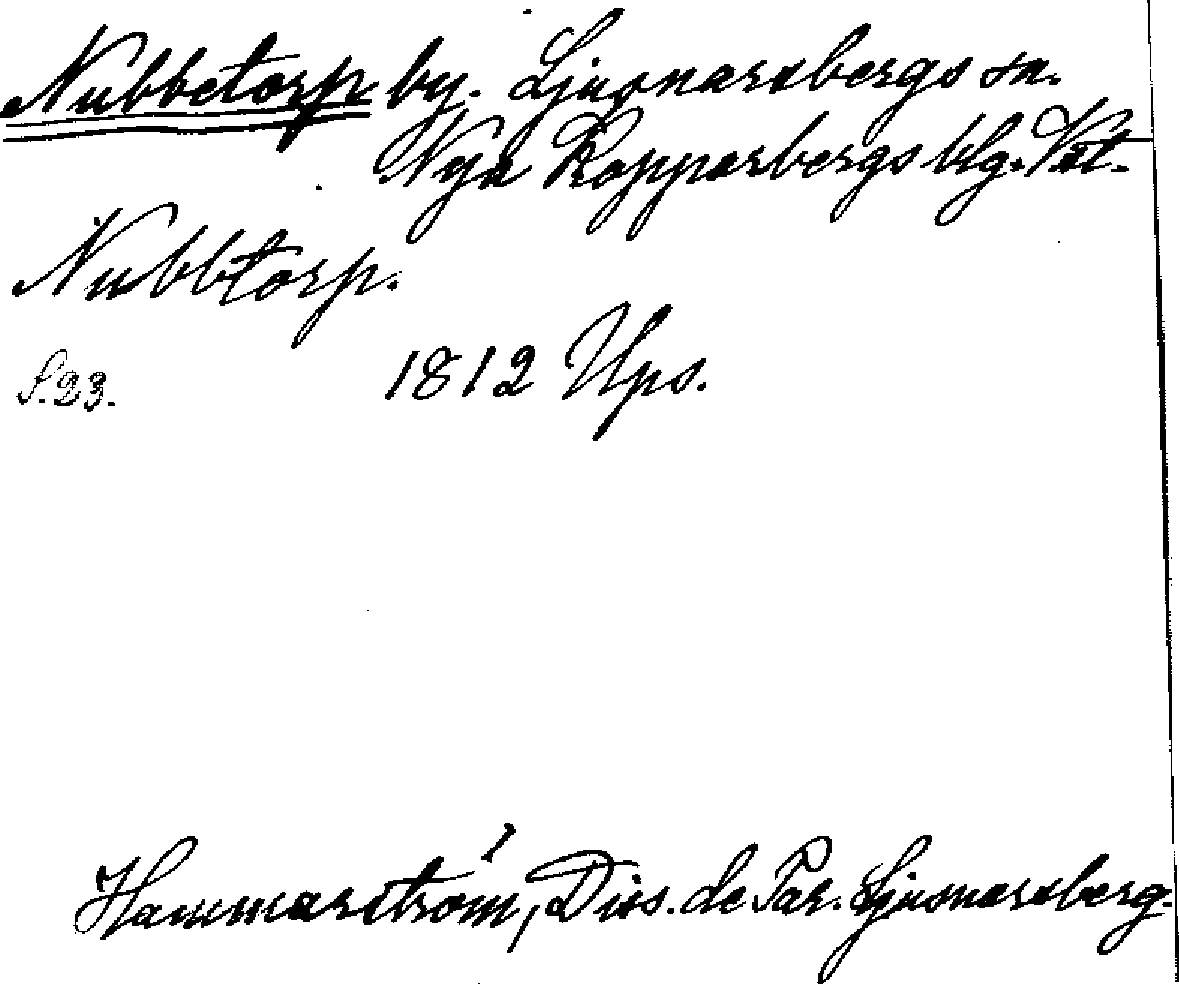 Nubbetorp by. Ljusnarsbergs sn.
Nya Kopparbergs blg. Väst.
Nubbtorp.
S. 23. 1812 Ups.
Hammarström, Diss. de Par. Ljusnarsberg.